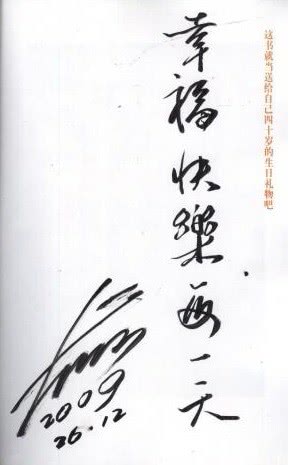 这书就当送给自己四十岁的生日礼物吧
幸福快樂每一天
2009
26.12